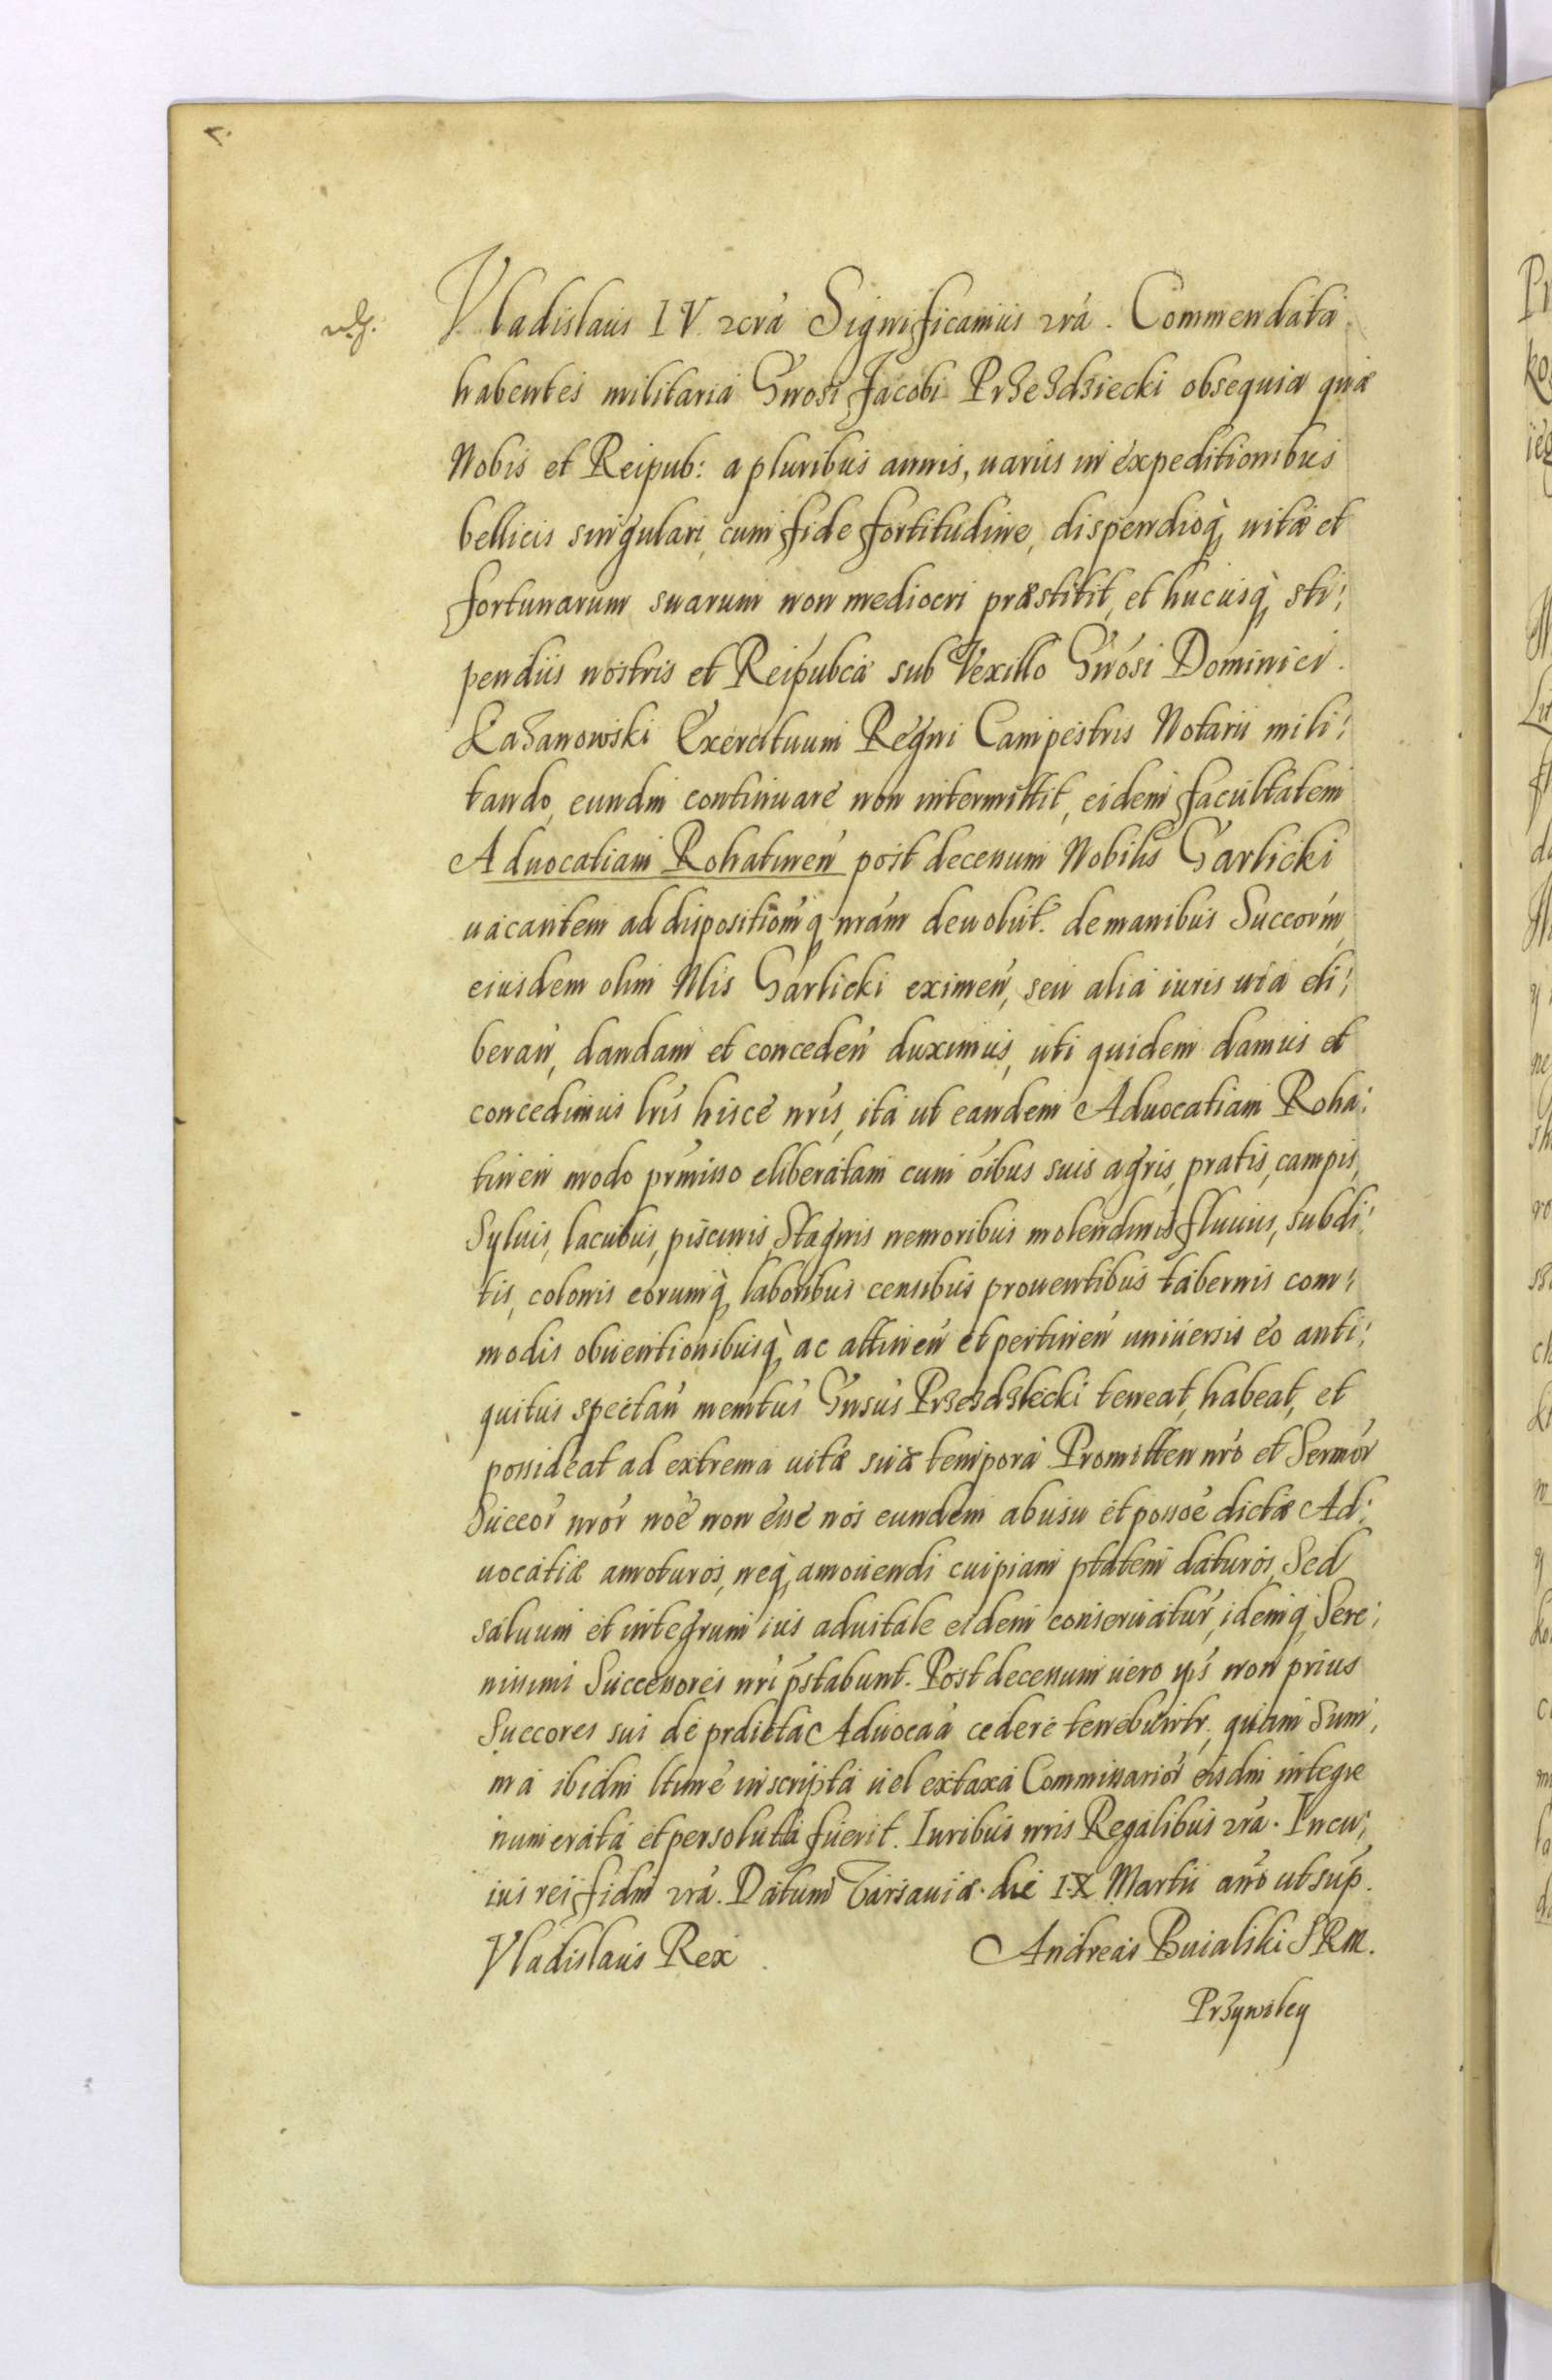 Vladislaus IV etcrá Significamus etrá. Commendata
habentes militaria Gnosi Jacobi Przezdziecki obsequia quæ
Nobis et Reipub: a pluribus annis, uariis in expeditionibus
bellicis singulari cum fide fortitudine, dispendioq, uitæ et
fortunarum suarum non mediocri præstitit, et hucusq, sti:
pendiis nostris et Reipubcæ sub Vexillo Gnosi Dominici
Kazanowski Exercituum Regni Campestris Notarii mili:
tando, eundm continuare non intermittit, eidem facultatem
Aduocatiam Rohatinen post decessum Nobilis Garlicki
uacantem ad dispositionq nram deuolut. de manibus Succorm
eiusdem olim Nlis Garlicki eximen, seu alia iuris uia eli:
beran, dandam et conceden duximus, uti quidem damus et
concedimus lris hisce nris, ita ut eandem Aduocatiam Roha:
tinen modo prmisso eliberatam cum oibus suis agris, pratis, campis,
Syluis, lacubus, piscinis, Stagnis nemoribus molendinis fluuiis, subdi:
tis, colonis eorumq, laboribus censibus prouentibus tabernis com:
modis obuentionibusq, ac attinen et pertinen uniuersis eo anti:
quitus spectan memtus Gnsus Przezdziecki teneat, habeat, et
possideat ad extrema uitæ suæ tempora Promitten nro et Sermor
Succor nror noe non esse nos eundem ab usu et possoe dictæ Ad:
uocatiæ amoturos, neq, amouendi cuipiam ptatem daturos, Sed
saluum et integrum ius aduitale eidem conseruatur, idemq, Sere:
nissimi Successores nri pstabunt. Post decessum uero ips non prius
Succores sui de prdicta Aduocaa cedere tenebuntr, quam Sum,
ma ibidm ltime inscripta uel extaxa Commissarior eisdm integre
numerata et persoluta fuerit. Iuribus nris Regalibus etrá. In cu:
ius rei fidm etrá. Datum Varsauiæ die IX Martii anno ut sup.
Vladislaus Rex
Andreas Buialski SRM.
Przywiley